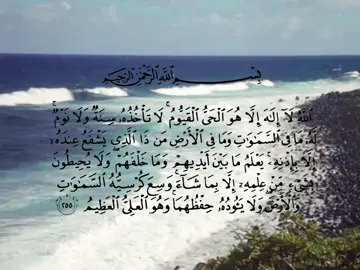 بِسْمِ اللَّهِ الرَّحْمَٰنِ الرَّحِيمِ
اللَّهُ لَا إِلَٰهَ إِلَّا هُوَ الْحَيُّ الْقَيُّومُ ۚ لَا تَأْخُذُهُ سِنَةٌ وَلَا نَوْمٌ ۚ
لَهُ مَا فِي السَّمَاوَاتِ وَمَا فِي الْأَرْضِ ۗ مَن ذَا الَّذِي يَشْفَعُ عِندَهُ
إِلَّا بِإِذْنِهِ ۚ يَعْلَمُ مَا بَيْنَ أَيْدِيهِمْ وَمَا خَلْفَهُمْ ۖ وَلَا يُحِيطُونَ
بِشَيْءٍ مِّنْ عِلْمِهِ إِلَّا بِمَا شَاءَ ۚ وَسِعَ كُرْسِيُّهُ السَّمَاوَاتِ
وَالْأَرْضَ ۖ وَلَا يَئُودُهُ حِفْظُهُمَا ۚ وَهُوَ الْعَلِيُّ الْعَظِيمُ ٢٥٥